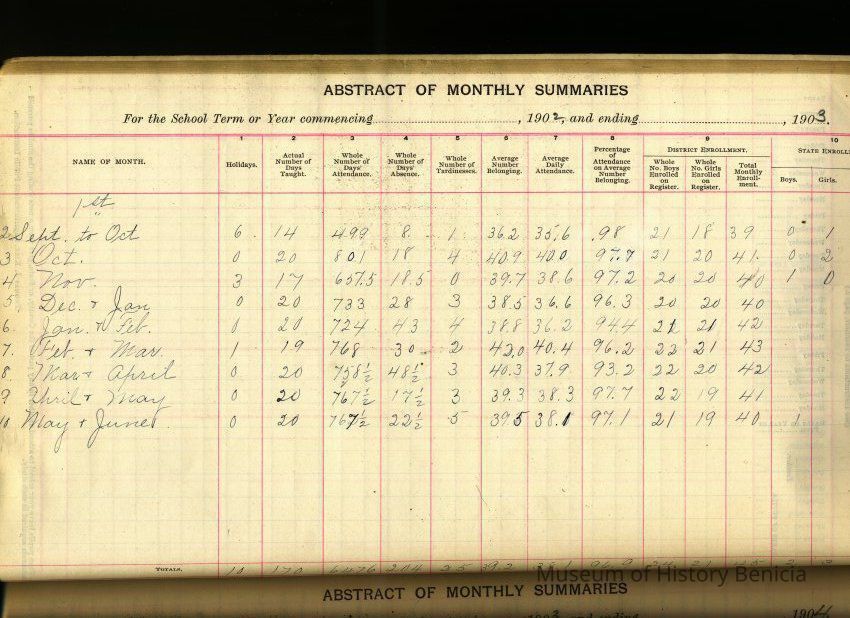 ABSTRACT OF MONTHLY SUMMARIES
For the School Term or Year commencing , 1902, and ending , 1903.
1 2 3 4 5 6 7 8 9 10
NAME OF MONTH. Holidays. Actual Number of Days Taught. Whole Number of Days' Attendance. Whole Number of Days' Absence. Whole Number of Tardinesses. Average Number Belonging. Average Daily Attendance. Percentage of Attendance on Average Number Belonging. DISTRICT ENROLLMENT. Whole No. Boys Enrolled on Register. Whole No. Girls Enrolled on Register. Total Monthly Enrollment. STATE ENROLL Boys. Girls.
1st
2 Sept. to Oct 6 14 499 8 1 36.2 35.6 .98 21 18 39 0 1
3 Oct. 0 20 801 18 4 40.9 40.0 97.7 21 20 41. 0 2
4 Nov. 3 17 657.5 18.5 0 39.7 38.6 97.2 20 20 40 1 0
5. Dec. & Jan 0 20 733 28 3 38.5 36.6 96.3 20 20 40
6. Jan. & Feb. 0 20 724 43 4 38.8 36.2 94.4 21 21 42
7. Feb. & Mar. 1 19 768 30 2 42.0 40.4 96.2 22 21 43
8 Mar & April 0 20 758½ 48½ 3 40.3 37.9 93.2 22 20 42
9 April & May 0 20 767½ 17½ 3 39.3 38.3 97.7 22 19 41
10 May & June 0 20 767½ 22½ 5 39.5 38.1 97.1 21 19 40
TOTALS. 10 170 6476 204 25 39.2 38.1
Museum of History Benicia
ABSTRACT OF MONTHLY SUMMARIES
1903 and ending 1904